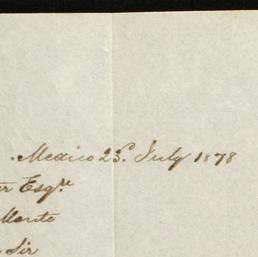 Mexico 23. July 1878
er Esqre
Monte
Sir